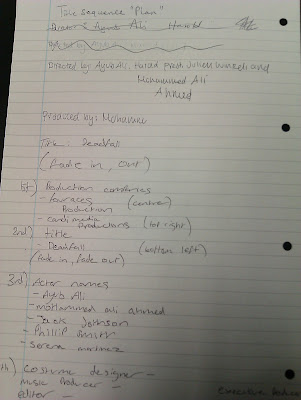 Title sequence "Plan"
Ayub Ali
Directed by: Ayub Ali, and
Mohammed Ali
Ahmed
Produced by:
Title: Deadfall
(fade in, out)
1st) Production companies
- four aces (centre)
Production
- media productions (top right)
2nd) title
- Deadfall (bottom left)
(fade in, fade out)
3rd) Actor names
- Ayub Ali
- mohammed ali ahmed
- Jack Johnson
- Phillip smith
- serena martinez
th) Costume designer -
Music Producer -
editor -
executive producer